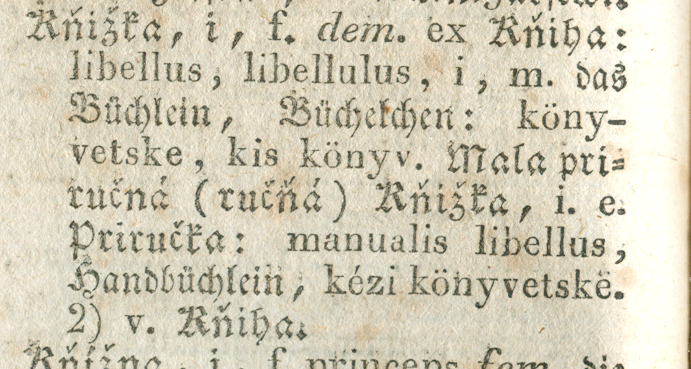 Kňižka, i, f. dem. ex Kňiha:
libellus, libellulus, i, m. das
Büchlein, Büchelchen: köny-
vetske, kis könyv. Mala pri-
ručná (ručňá) Kňižka, i. e.
Priručka: manualis libellus,
Handbüchlein, kézi könyvetske.
2) v. Kňiha.
Kňižna, i, f. princeps fem. die